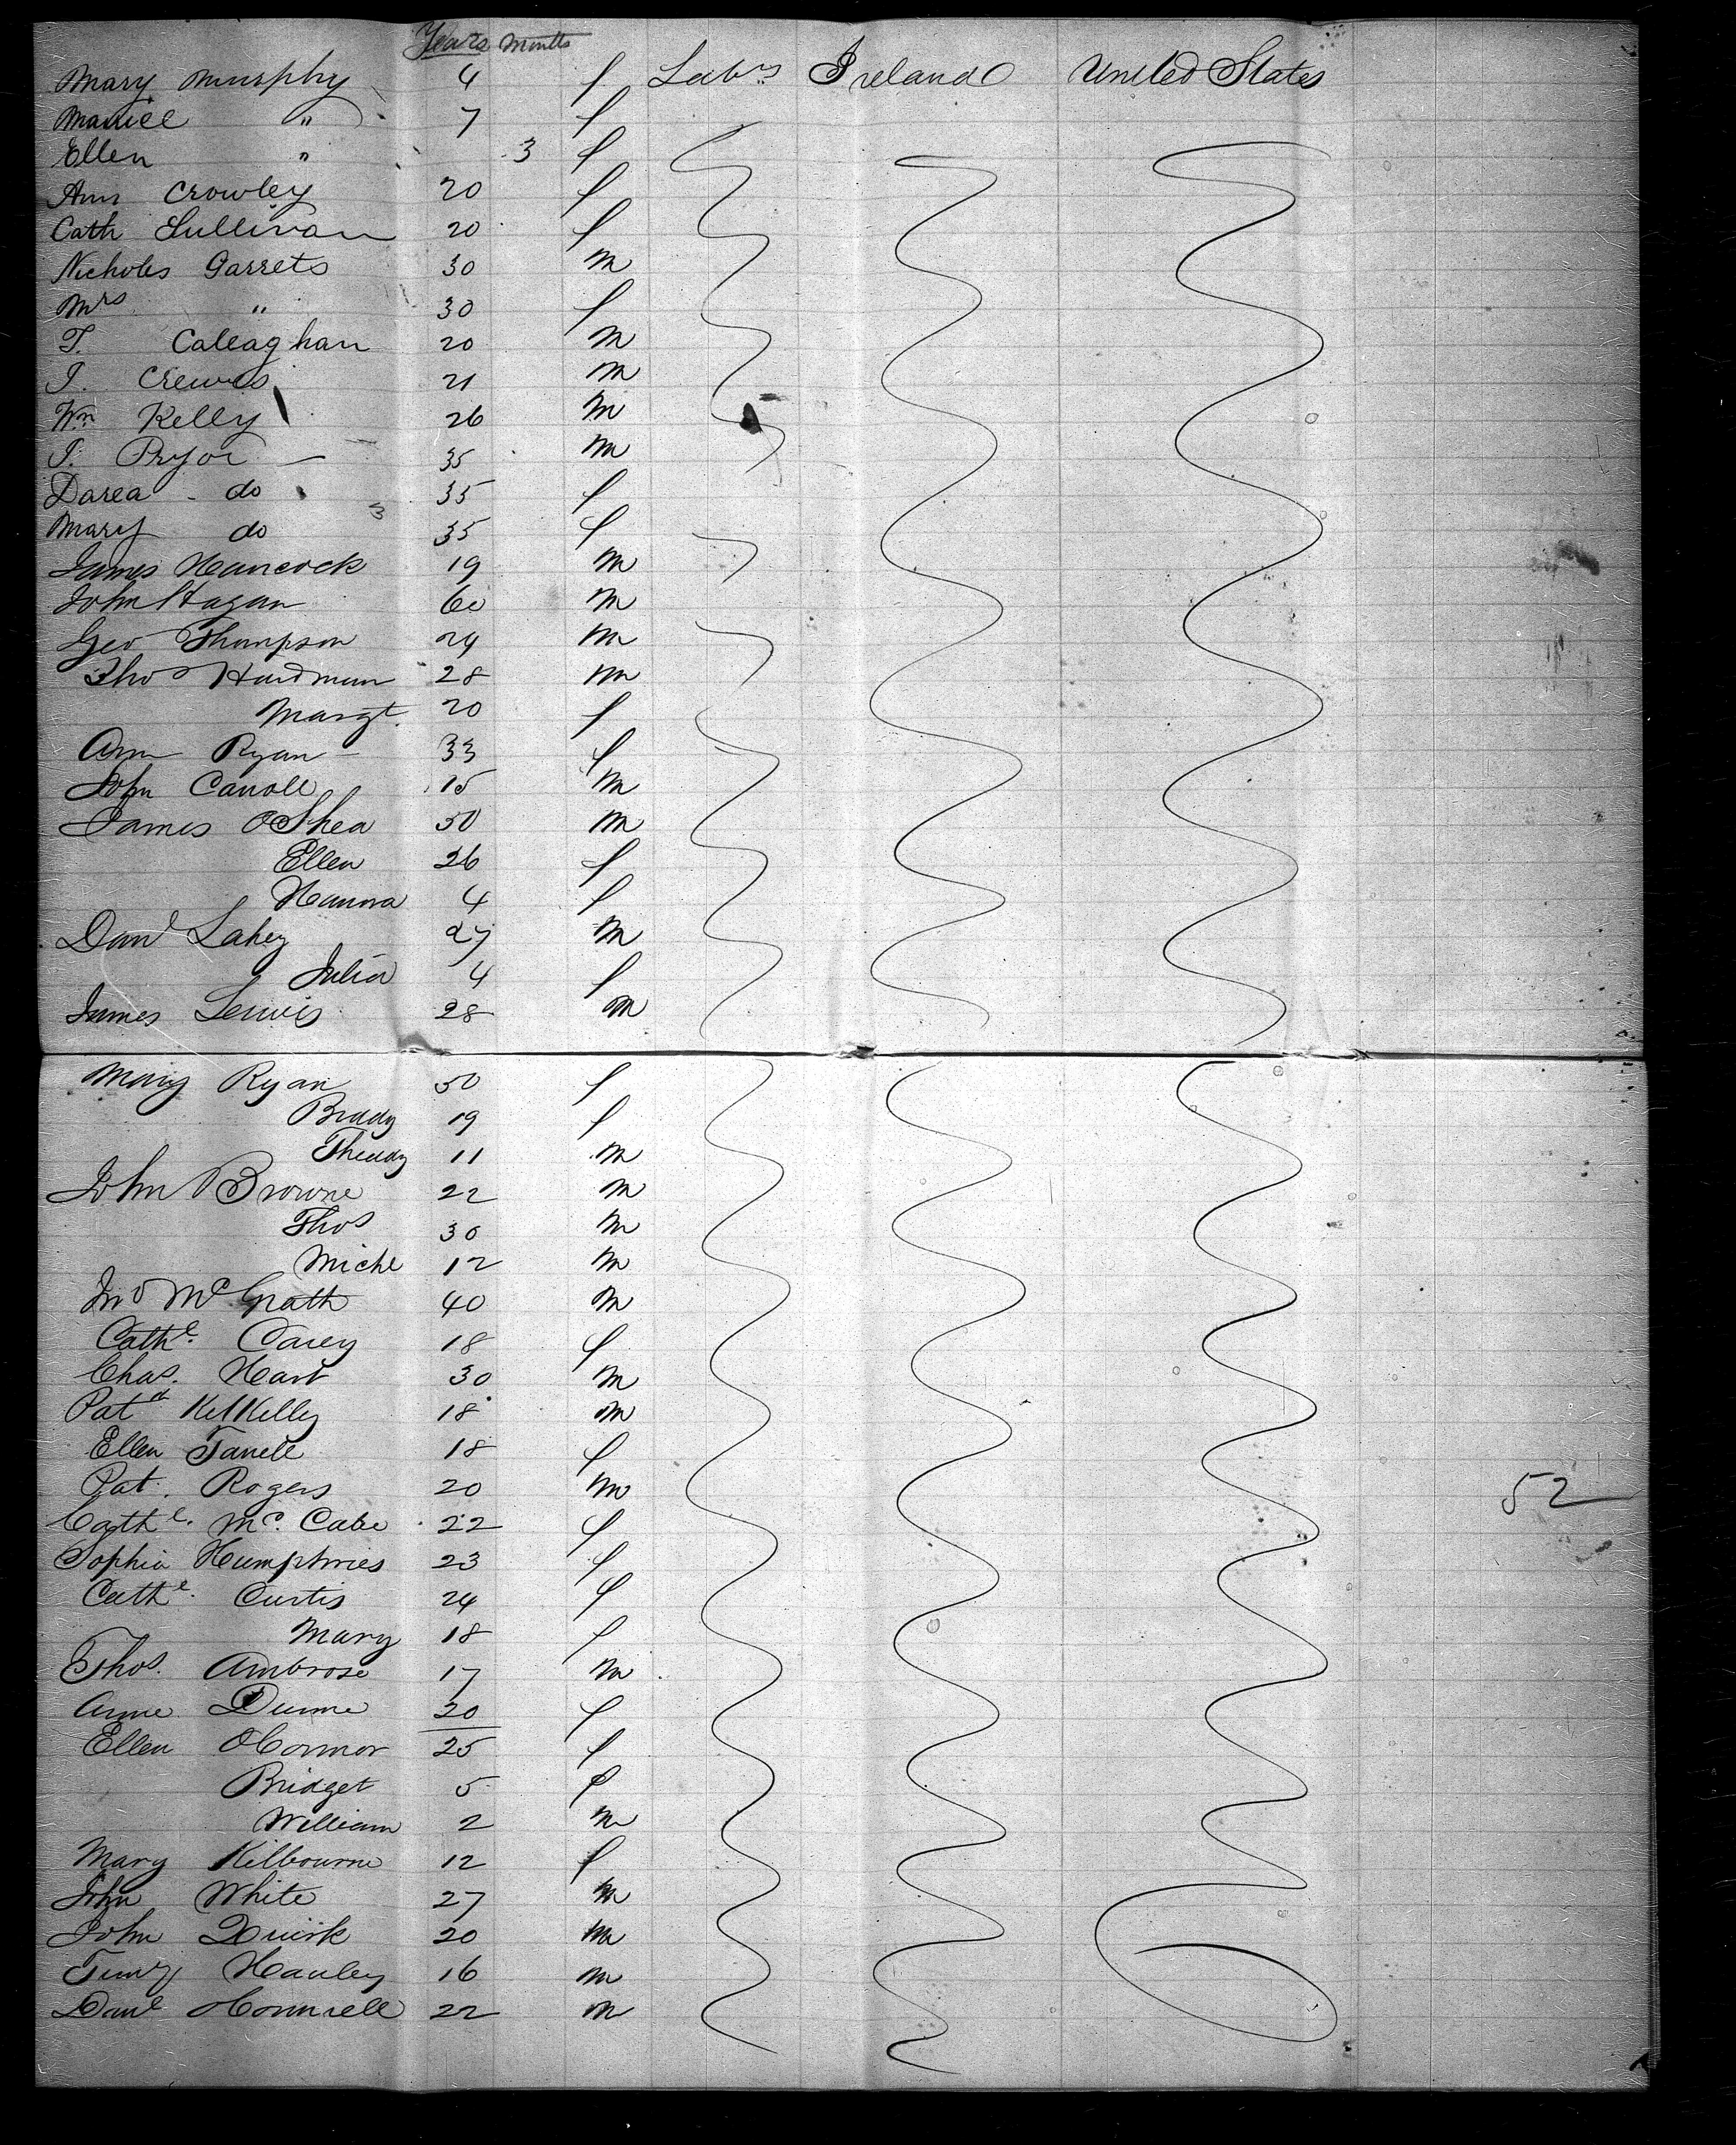 Years Months
Mary Murphy 4 f Labrs Ireland United States
" 7 f
Ellen " 3 f
Ann Crowley 20 f
Cath Sullivan 20 f
Nicholes Garrets 30 m
Mrs " 30 f
T. Caleaghan 20 m
J. Crewes 21 m
Wm Kelly 26 m
J. Pryor 35 m
Darea do 35 f
Mary do 35 f
James Hancock 19 m
John Hagan 60 m
Geo Thompson 24 m
Thos Hardman 28 m
Margt. 20 f
Ann Ryan 33 f
John Caroll 15 m
James OShea 50 m
Ellen 26 f
Hanna 4 f
Danl Lahey 27 m
Julia 4 f
James Lewis 28 m
Mary Ryan 50 f
Biddy 19 f
Theady 11 m
John Browne 22 m
Thos 30 m
Michl 12 m
Jno McGrath 40 m
Cathe. Carey 18 f
Chas. Hart 30 m
Patk KelKelly 18 m
Ellen 18 f
Pat. Rogers 20 m
Cathe. Mc. Cabe 22 f
Sophia Humphries 23 f
Cathe. Curtis 24 f
Mary 18 f
Thos. Ambrose 17 m
Anne Dunne 20 f
Ellen OConnor 25 f
Bridget 5 f
William 2 m
Mary Kilbourne 12 f
John White 27 m
John Quirk 20 m
Timy Hanley 16 m
Danl OConnell 22 m
52